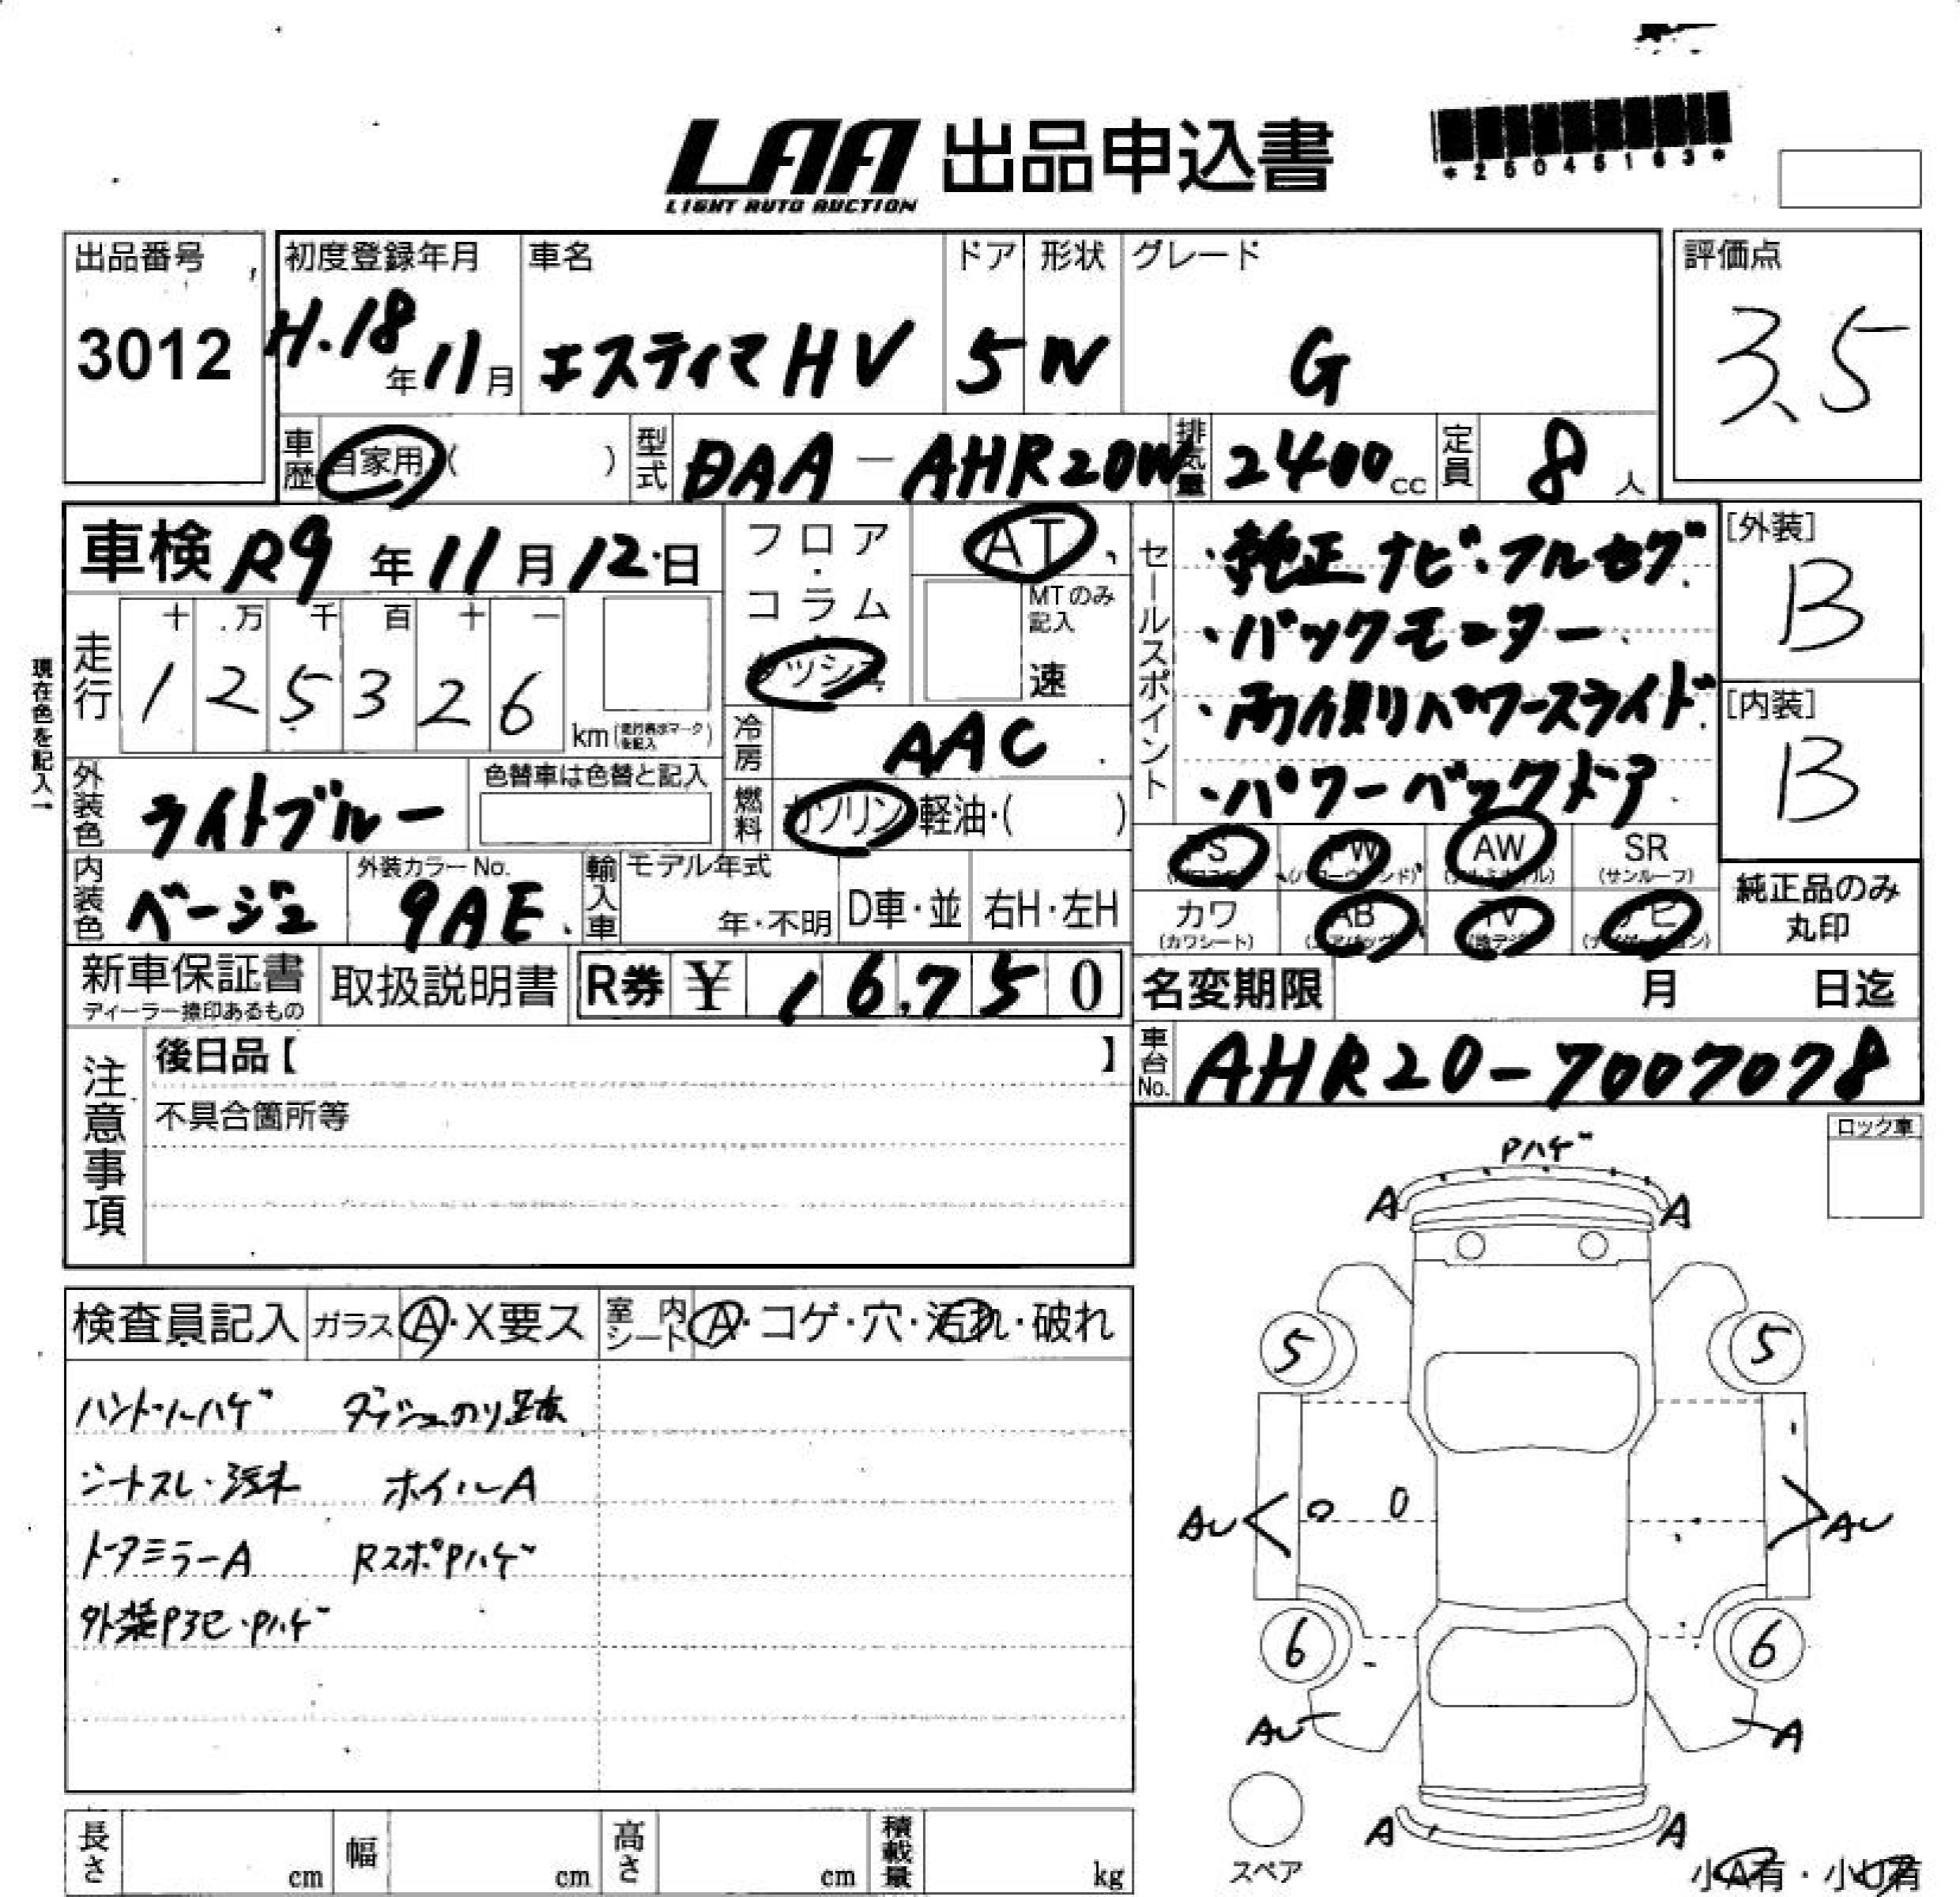 LAA 出品申込書
LIGHT AUTO AUCTION
*25045163*
出品番号
3012
初度登録年月
H.18年11月
車名
エスティマHV
ドア
5
形状
W
グレード
G
評価点
3.5
車歴
自家用( )
型式
DAA-AHR20W
排気量
2400cc
定員
8人
車検 R9年11月12日
走行
十万千百十一
125326
km(走行表示マークを記入)
現在色を記入→
フロア・コラム
ダッシュ
AT
MTのみ記入
速
冷房
AAC
燃料
ガソリン・軽油・( )
外装色
ライトブルー
色替車は色替と記入
内装色
ベージュ
外装カラーNo.
9AE
輸入車
モデル年式
年・不明
D車・並
右H・左H
セールスポイント
・純正ナビ・フルセグ
・バックモニター
・両側パワースライド
・パワーバックドア
[外装]
B
[内装]
B
PS
PW
AW
SR
(サンルーフ)
カワ
(カワシート)
AB
(エアバッグ)
TV
(地デジ)
ナビ
(ナビゲーション)
純正品のみ
丸印
新車保証書
ディーラー捺印あるもの
取扱説明書
R券 ¥ 16,750
名変期限 月 日迄
車台No.
AHR20-7007078
注意事項
後日品【 】
不具合箇所等
ロック車
検査員記入
ガラス A・X要ス
室内シート A・コゲ・穴・汚れ・破れ
ハンドルハゲ ダッシュのり跡
シートスレ・汚れ ホイルA
ドアミラーA RスポPハゲ
外装Pハゲ
Pハゲ
A A
5 5
AU AU
6 6
AU A
A A
スペア
小A有・小U有
長さ cm
幅 cm
高さ cm
積載量 kg